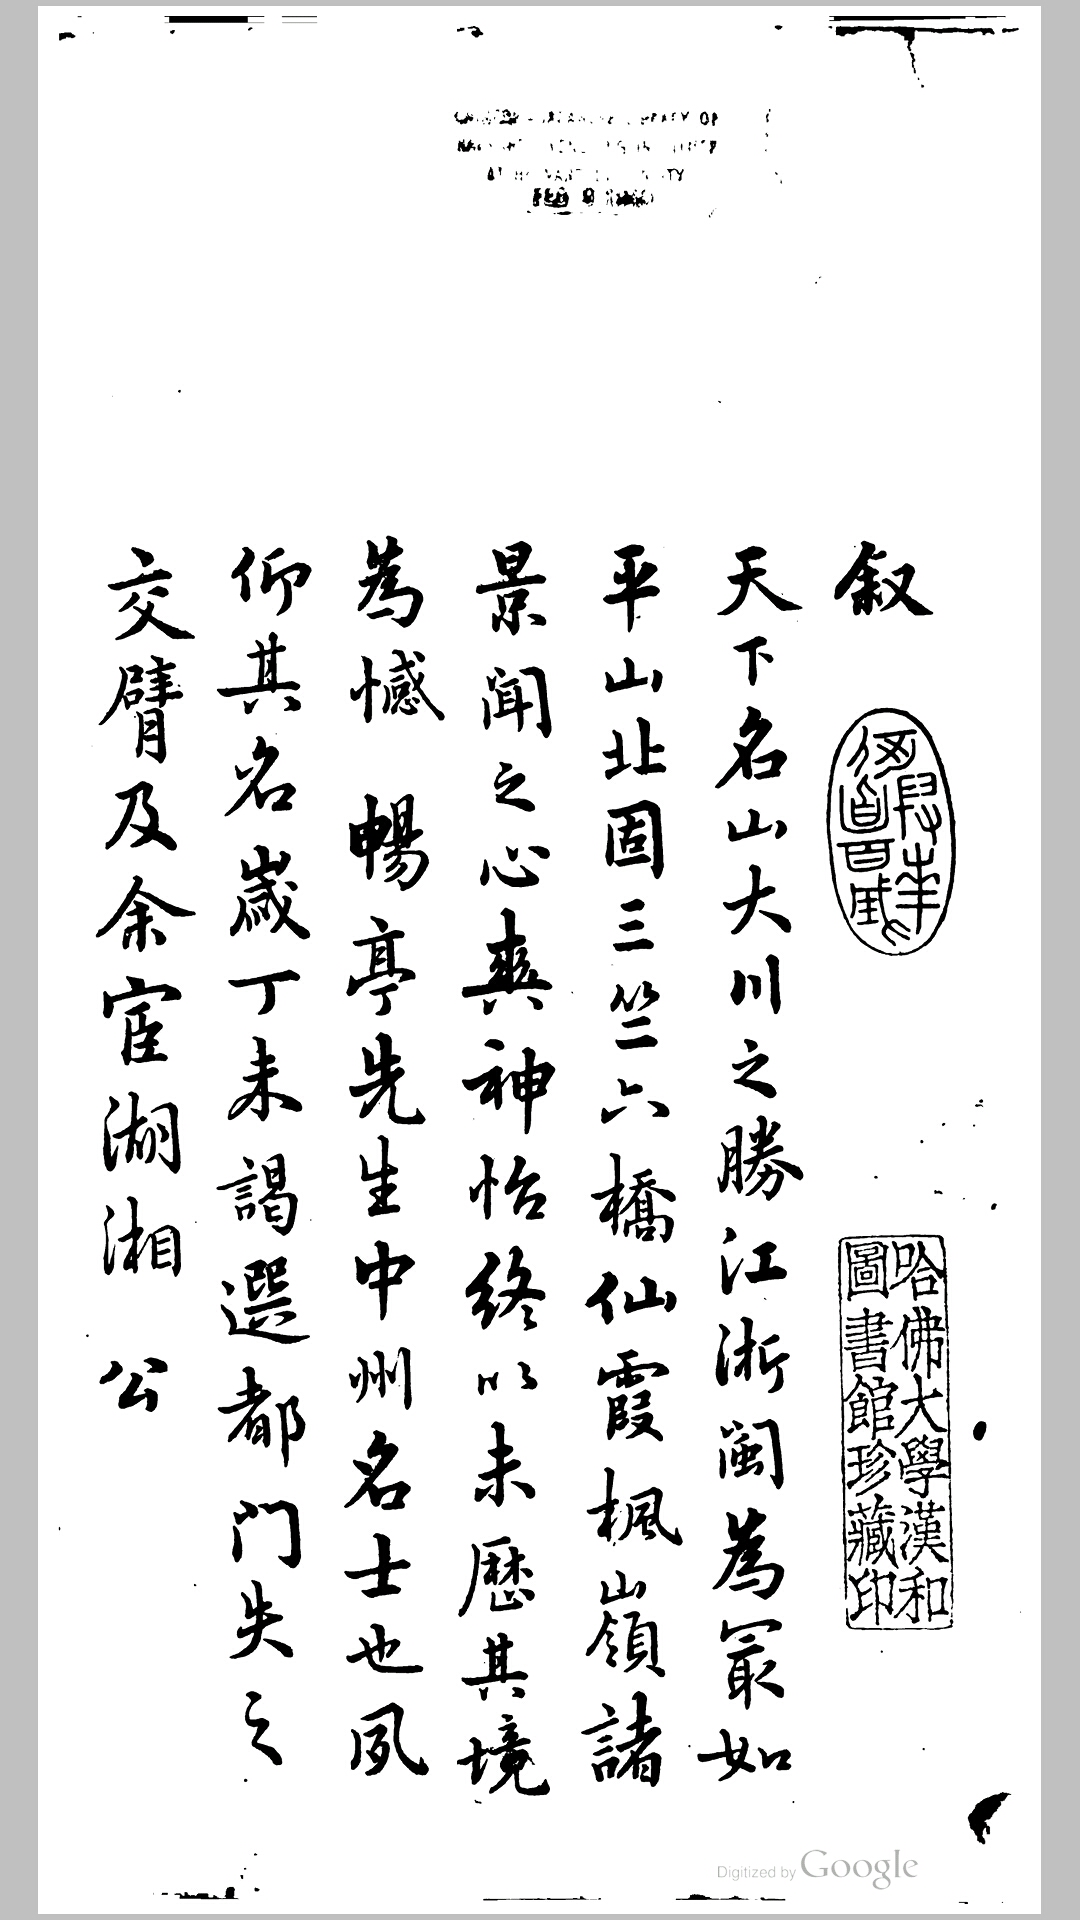 叙
天下名山大川之勝江浙閩為冣如
平山北固三竺六橋仙霞楓嶺諸
景聞之心爽神怡終以未歷其境
為憾 暢亭先生中州名士也夙
仰其名歲丁未謁選都門失之
交臂及余宦湖湘 公
哈佛大學漢和
圖書館珍藏印
Digitized by Google